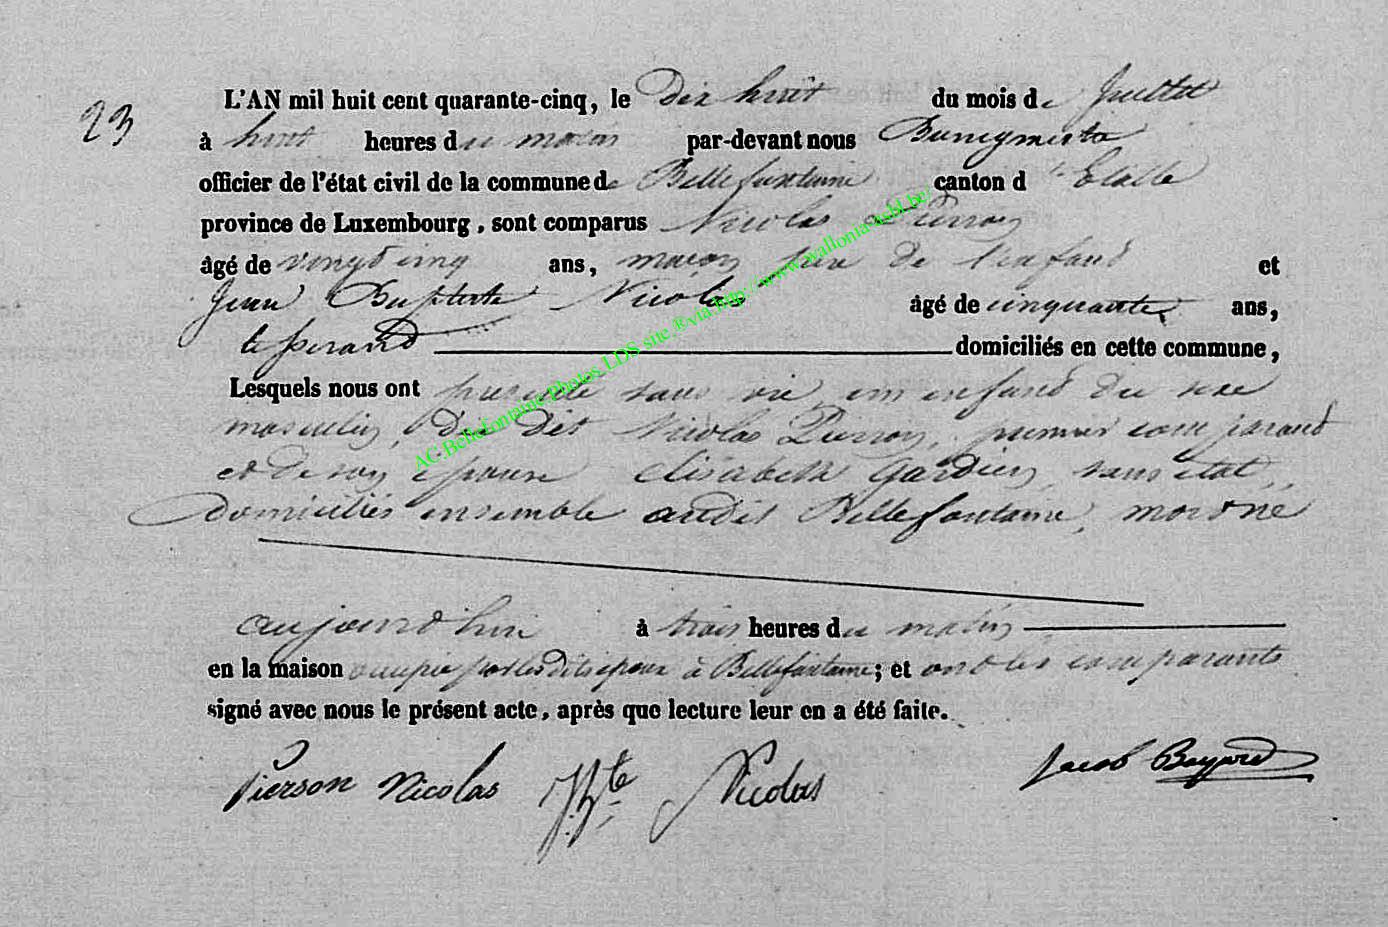 23
L'AN mil huit cent quarante-cinq, le dix huit du mois de Juillet
à huit heures du matin par-devant nous Burgmestre
officier de l'état civil de la commune de Bellefontaine canton d'Etalle
province de Luxembourg, sont comparus Nicolas Pierson
âgé de vingt cinq ans, maçon père de l'enfant et
Jean Baptiste Nicolas âgé de cinquante ans,
domiciliés en cette commune,
Lesquels nous ont présenté sans vie, un enfant du sexe
masculin, du dit Nicolas Pierson, premier comparant
et de son épouse Elisabeth Gardien, sans état,
domiciliés ensemble audit Bellefontaine, mort né
aujourd'hui à trois heures du matin
en la maison occupée par les dits époux à Bellefontaine; et ont les comparants
signé avec nous le présent acte, après que lecture leur en a été faite.
Pierson Nicolas J. Bte Nicolas Jacob Bayard
AC.Bellefontaine Photos LDS site ®via http://www.wallonia-asbl.be/